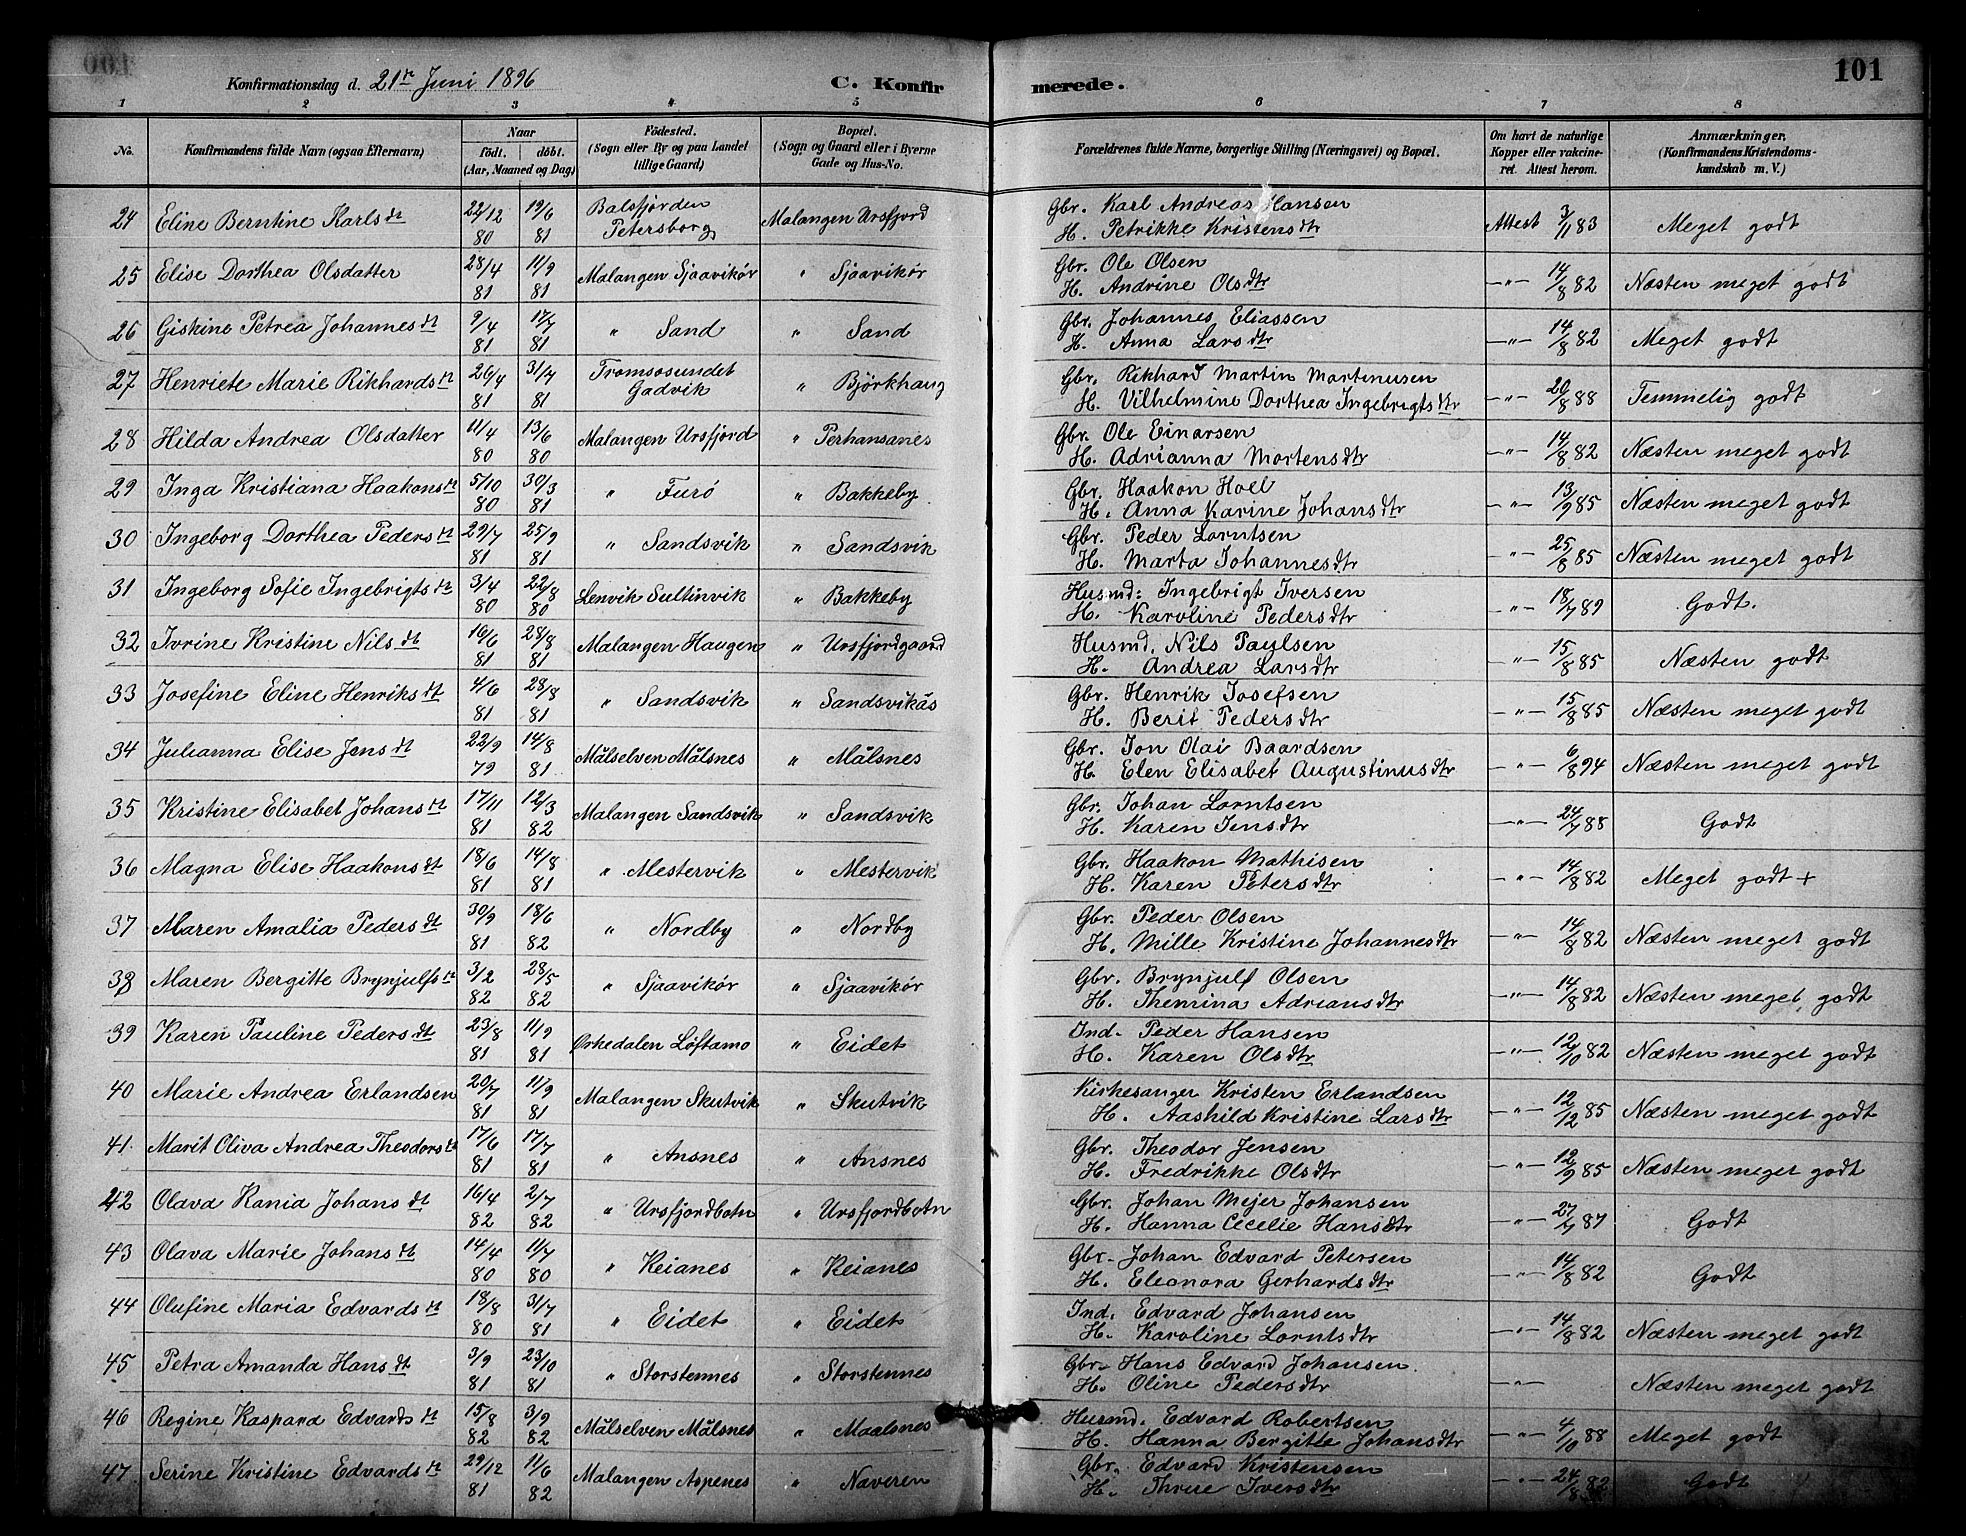 101
Konfirmationsdag d. 21de Juni 1896
C. Konfirmerede.
1 2 3 4 5 6 7 8
No. Konfirmandens fulde Navn (ogsaa Efternavn) Naar födt. döbt. (Aar, Maaned og Dag) Födested. (Sogn eller By og paa Landet tillige Gaard) Bopæl. (Sogn og Gaard eller i Byerne Gade og Hus-No. Forældrenes fulde Navne, borgerlige Stilling (Næringsvei) og Bopæl. Om havt de naturlige Kopper eller vakcineret. Attest herom. Anmærkninger. (Konfirmandens Kristendomskundskab m. V.)
24 Eline Berntine Karlsdt 22/12 80 19/6 81 Balsfjorden Petersborg Malangen Ursfjord Gbr. Karl Andreas Hansen Attest 3/11 83 Meget godt
H. Petrikke Kristensdtr
25 Elise Dorthea Olsdatter 28/4 81 11/9 81 Malangen Sjaavikør " Sjaavikør Gbr. Ole Olsen —"— 14/8 82 Næsten meget godt
H. Andrine Olsdtr
26 Giskine Petrea Johannesdt 9/4 81 17/7 81 " Sand " Sand Gbr. Johannes Eliassen —"— 14/8 82 Meget godt
H. Anna Larsdtr
27 Henriete Marie Rikhardsdt 26/4 81 31/7 81 Tromsøsundet Gadvik " Björkhaug Gbr. Rikhard Martin Martenusen —"— 20/8 88 Temmelig godt
H. Vilhelmine Dorthea Ingebrigtsdtr
28 Hilda Andrea Olsdatter 11/4 80 13/6 80 Malangen Ursfjord " Perhansanes Gbr. Ole Einarsen —"— 14/8 82 Næsten meget godt
H. Adrianna Mortensdtr
29 Inga Kristiana Haakonsdt 5/10 80 30/3 81 " Furö " Bakkeby Gbr. Haakon Hoel —"— 13/9 85 Næsten meget godt
H. Anna Karine Johansdtr
30 Ingeborg Dorthea Pedersdt 29/7 81 25/9 81 " Sandsvik " Sandsvik Gbr. Peder Lorntsen —"— 25/8 85 Næsten meget godt
H. Marta Johannesdtr
31 Ingeborg Sofie Ingebrigtsdt 3/4 80 22/8 80 Lenvik Sultinvik " Bakkeby Husmd: Ingebrigt Iversen —"— 18/7 89 Godt.
H. Karoline Pedersdtr
32 Ivrine Kristine Nilsdt 16/6 81 28/8 81 Malangen Haugen " Ursfjordgaard Husmd. Nils Paulsen —"— 15/8 85 Næsten godt
H. Andrea Larsdtr
33 Josefine Eline Henriksdt 4/6 81 28/8 81 " Sandsvik " Sandsvikås Gbr. Henrik Josefsen —"— 15/8 85 Næsten meget godt
H. Berit Pedersdtr
34 Julianna Elise Jensdt 22/9 79 14/8 81 Målselven Målsnes " Målsnes Gbr. Jon Olai Baardsen —"— 6/8 94 Næsten meget godt
H. Elen Elisabet Augustinusdtr
35 Kristine Elisabet Johansdt 17/11 81 12/3 82 Malangen Sandsvik " Sandsvik Gbr. Johan Lorntsen —"— 24/7 88 Godt
H. Karen Jensdtr
36 Magna Elise Haakonsdt 18/6 81 14/8 81 " Mestervik " Mestervik Gbr. Haakon Mathisen —"— 14/8 82 Meget godt +
H. Karen Petersdtr
37 Maren Amalia Pedersdt 30/9 81 18/6 82 " Nordby " Nordby Gbr. Peder Olsen —"— 14/8 82 Næsten meget godt
H. Mille Kristine Johannesdtr
38 Maren Bergitte Brynjulfsdt 3/2 82 28/5 82 " Sjaavikør " Sjaavikør Gbr. Brynjulf Olsen —"— 14/8 82 Næsten meget godt
H. Themina Adriansdtr
39 Karen Pauline Pedersdt 23/8 81 11/9 81 Ørkedalen Løftamo " Eidet Ind. Peder Hansen —"— 12/10 82 Næsten meget godt
H. Karen Olsdtr
40 Marie Andrea Erlandsen 20/7 81 11/9 81 Malangen Skutvik " Skutvik Kirkesanger Kristen Erlandsen —"— 12/12 85 Næsten meget godt
H. Aashild Kristine Larsdtr
41 Marit Oliva Andrea Theodorsdt 17/6 81 17/7 81 " Ansnes " Ansnes Gbr. Theodor Jensen —"— 12/9 85 Næsten meget godt
H. Fredrikke Olsdtr
42 Olava Rania Johansdt 16/4 82 2/7 82 " Ursfjordbotn " Ursfjordbotn Gbr. Johan Mejer Johansen —"— 27/7 87 Godt
H. Hanna Cecelie Hansdtr
43 Olava Marie Johansdt 14/4 80 11/7 80 " Keianes " Keianes Gbr. Johan Edvard Petersen —"— 14/8 82 Godt
H. Eleonora Gerhardsdtr
44 Olufine Maria Edvardsdt 18/8 80 31/7 81 " Eidet " Eidet Ind. Edvard Johansen —"— 14/8 82 Næsten meget godt
H. Karoline Lorntsdtr
45 Petra Amanda Hansdt 3/9 81 23/10 81 " Storstennes " Storstennes Gbr. Hans Edvard Johansen —"— Næsten meget godt
H. Oline Pedersdtr
46 Regine Kaspara Edvardsdt 15/8 82 3/9 82 Målselven Målsnes " Maalsnes Husmd. Edvard Robertsen —"— 4/10 88 Meget godt
H. Hanna Bergitte Johansdtr
47 Serine Kristine Edvardsdt 29/12 81 11/6 82 Malangen Aspenes " Naveren Gbr. Edvard Kristensen —"— 24/8 82 Godt
H. Thrue Iversdtr